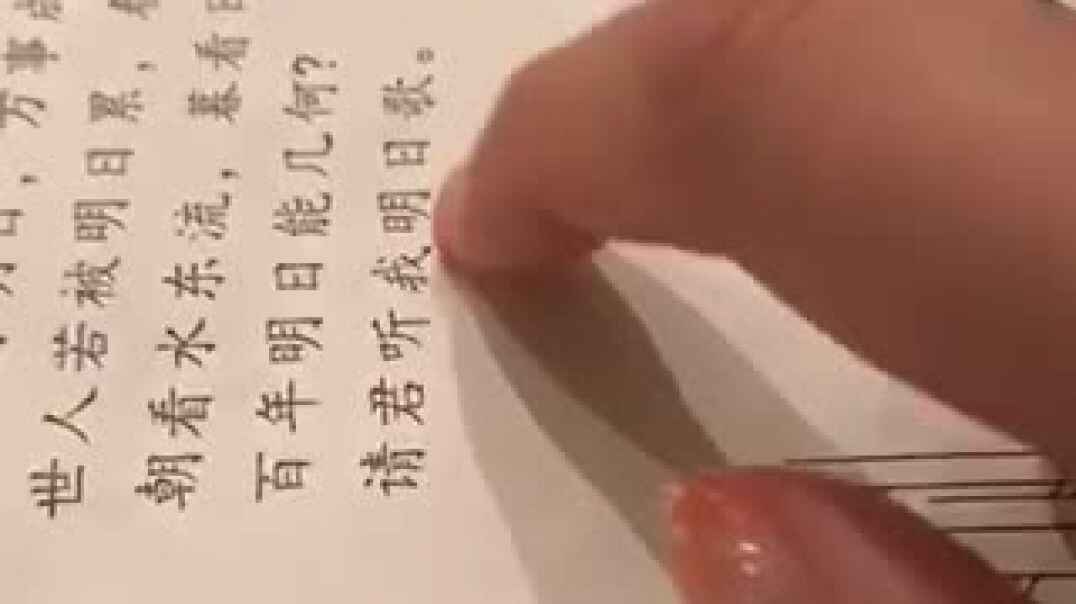 日，万事
世人若被明日累，
朝看水东流，暮看日
百年明日能几何?
请君听我明日歌。